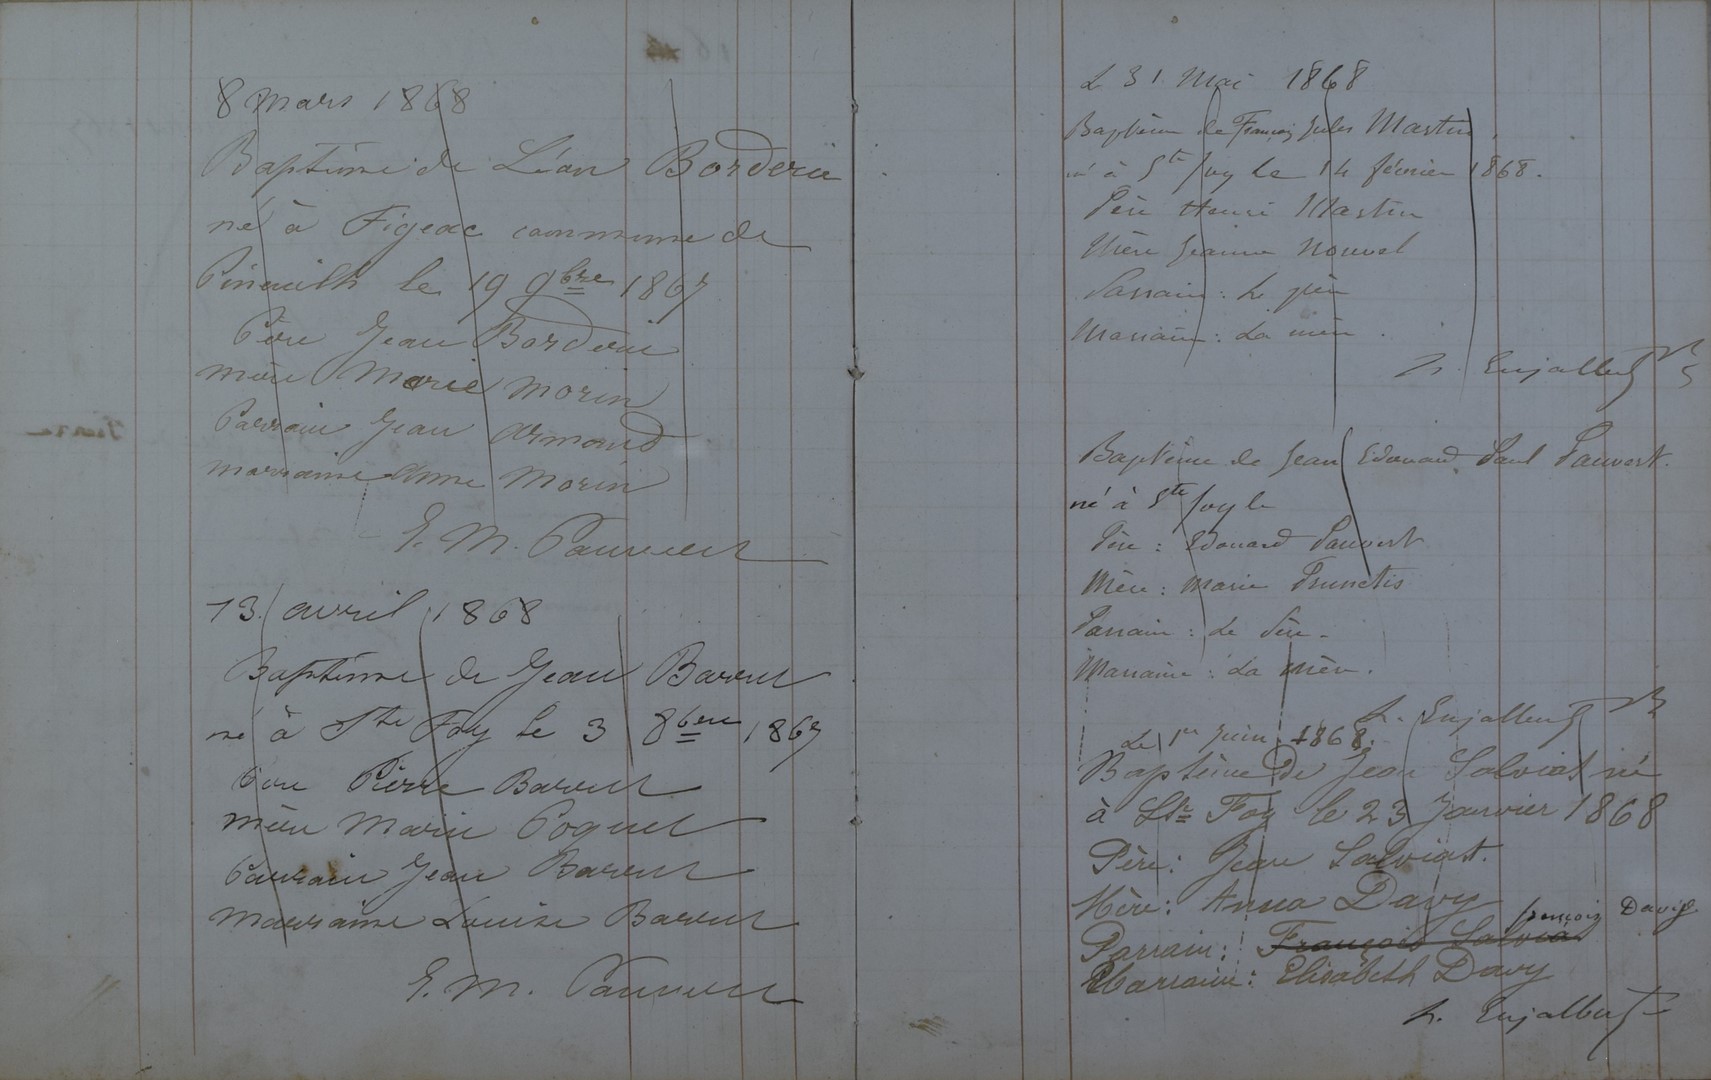 8 mars 1868
Baptême de Léon Borderie
né à Figeac commune de
Pineuilh le 19 9bre 1867
Père Jean Borderie
mère Marie Morin
Parrain Jean Armand
marraine Anne Morin
E. M. Pauvert
13 avril 1868
Baptême de Jean
né à Ste Foy le 3 8bre 1867
Père Pierre
mère Marie
Parrain Jean
marraine Louise
E. M. Pauvert
Le 31 Mai 1868
Baptême de François Jules Martin
né à Ste foy le 14 février 1868.
Père Henri Martin
Mère Jeanne Nouvel
Parrain : Le père
Marraine : La mère .
Enjalbert
Baptême de Jean Edouard Paul Pauvert.
né à Ste foy le
Père : Edouard Pauvert
Mère : Marie
Parrain : Le Père -
Marraine : La Mère .
Enjalbert
Le 1er Juin 1868.
Baptême de Jean Salviat né
à Ste Foy le 23 Janvier 1868
Père : Jean Salviat.
Mère : Anna Davy
françois Davy
Parrain : François Salviat
Marraine : Elisabeth Davy
Enjalbert